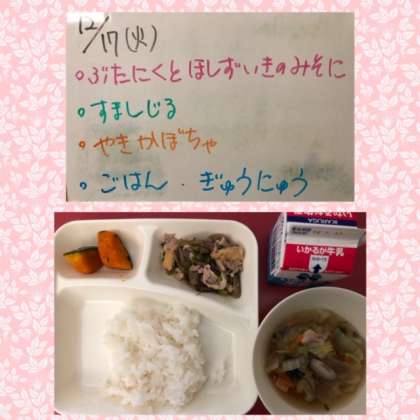 12/17(火)
○ぶたにくとほしずいきのみそに
○すましじる
○やきかぼちゃ
○ごはん・ぎゅうにゅう
いかるが牛乳